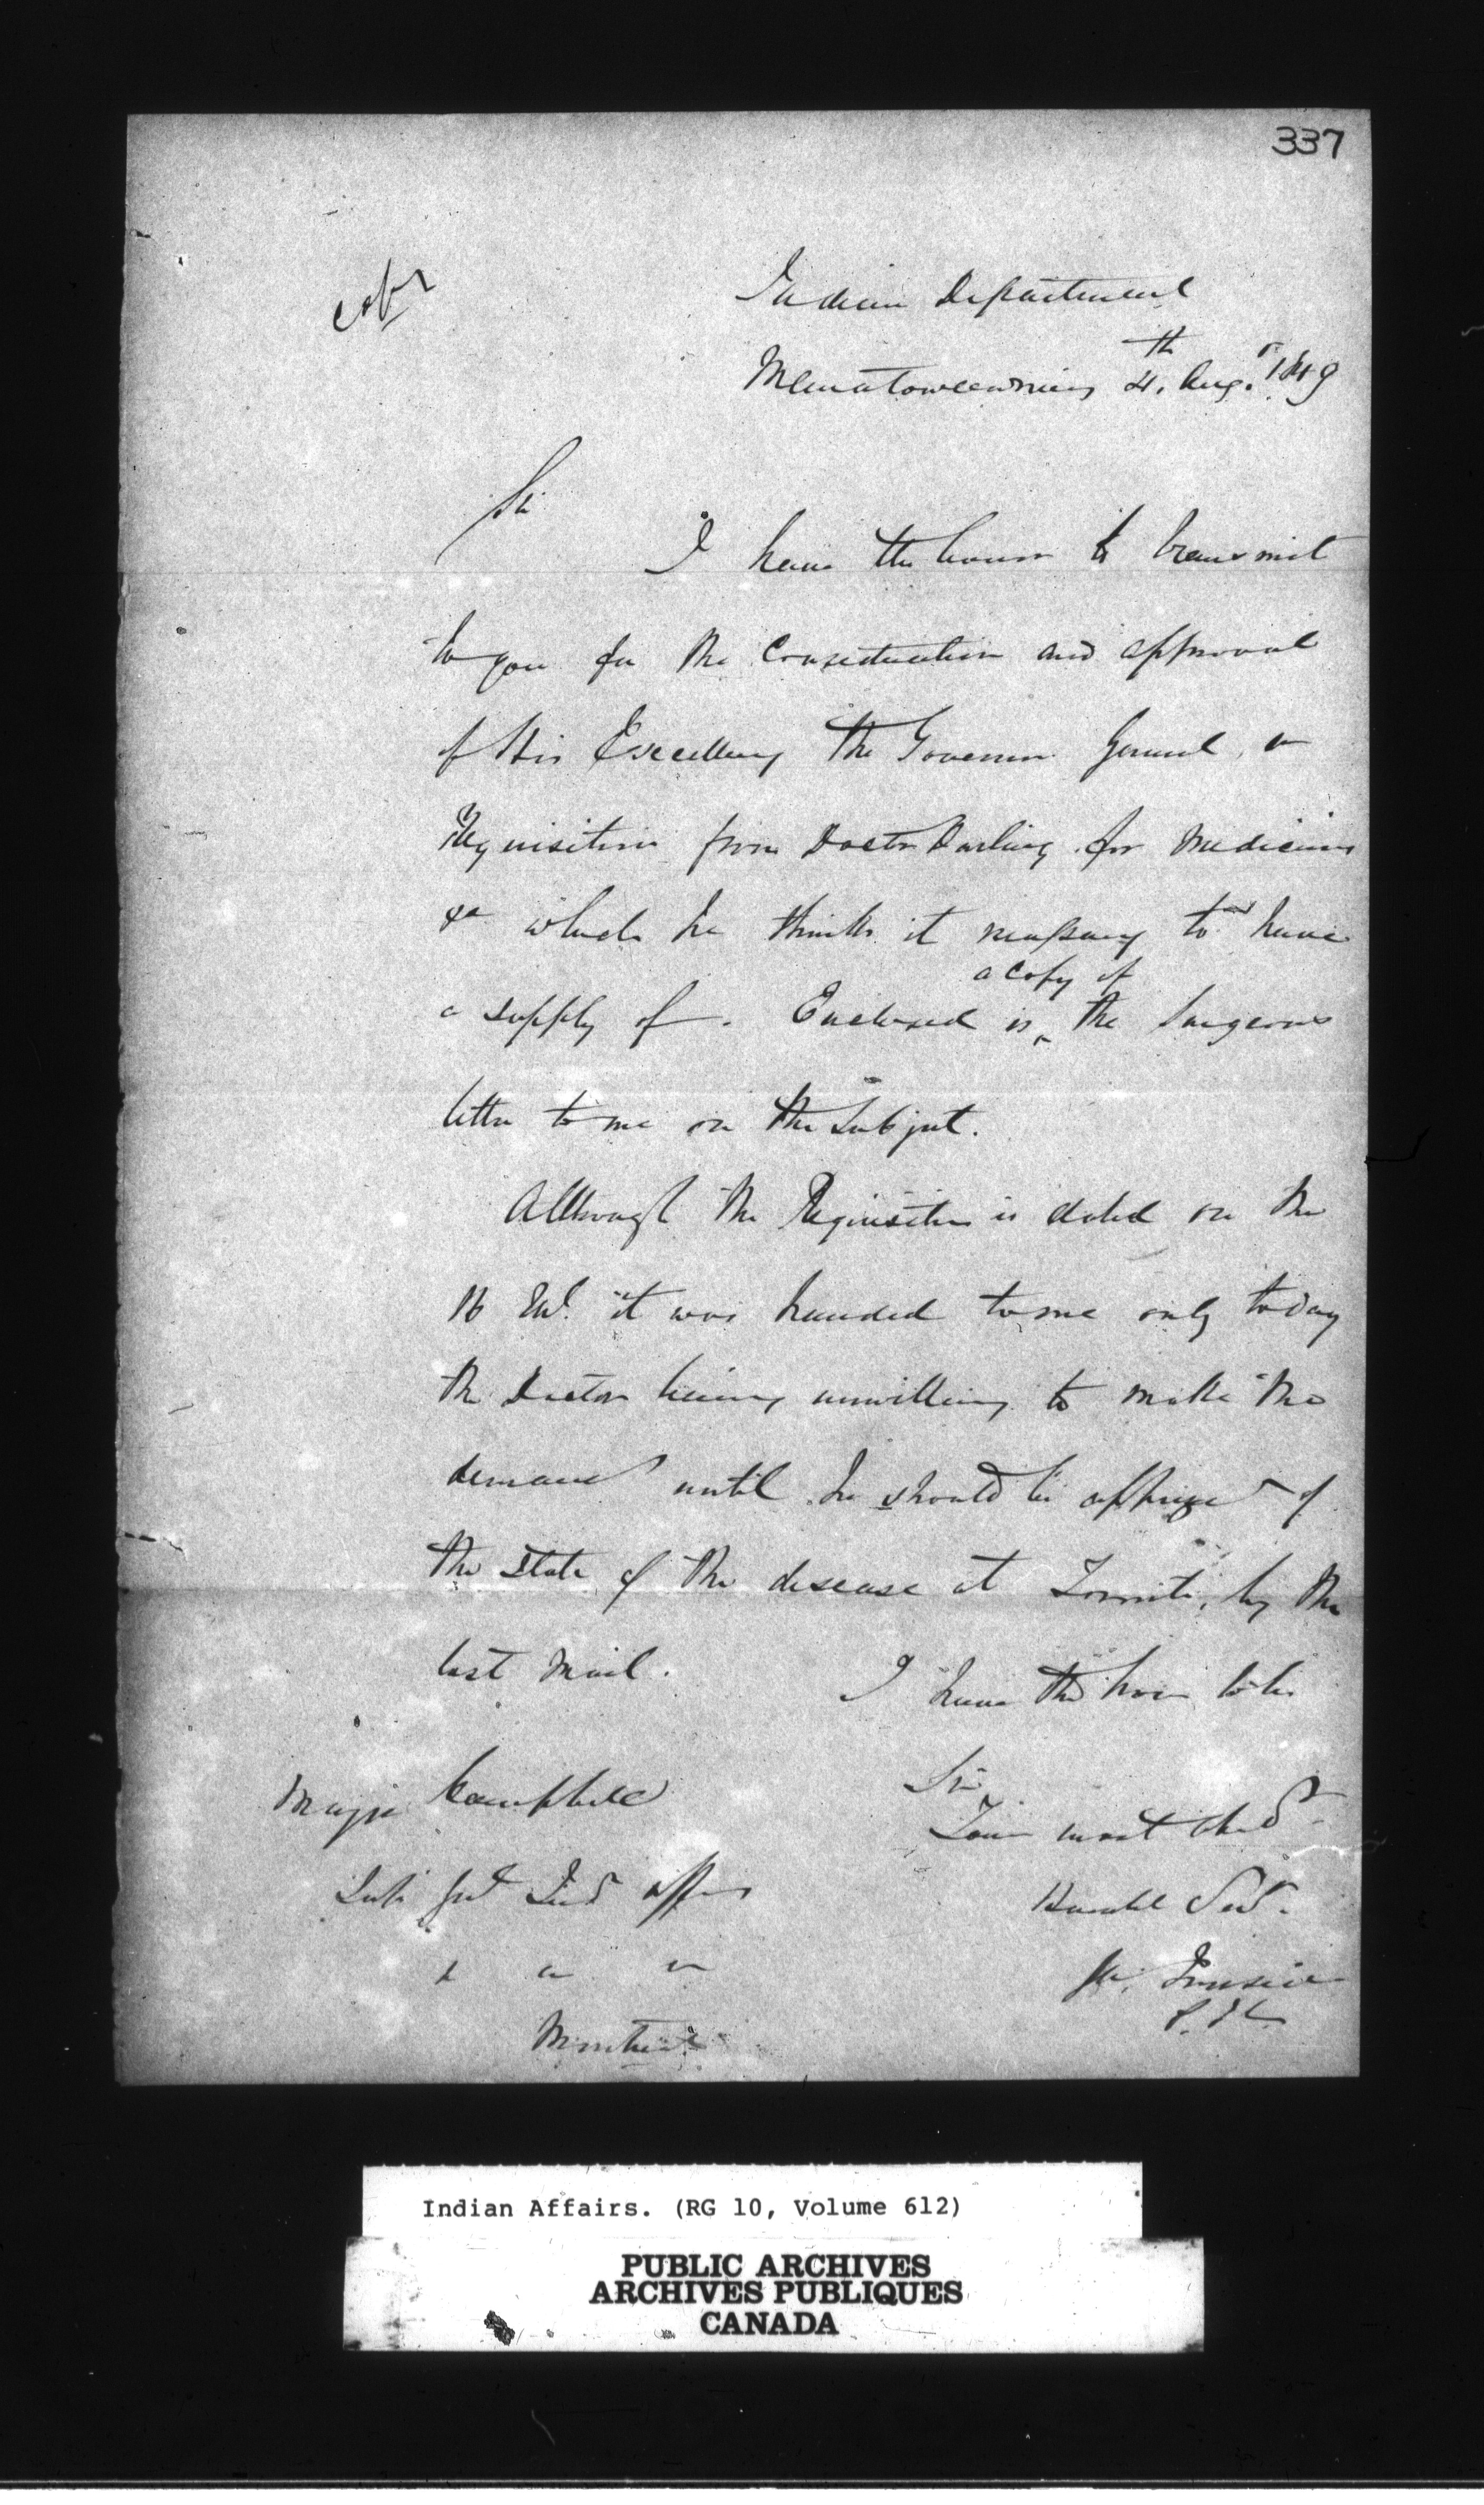 337
Indian Department
Manatowawning 4th. Augt. 1849
Sir
I have the honor to transmit
to you for the Consideration and approval
of His Excellency the Governor General, a
Requisition from Doctor Darling for Medicines
&a which he thinks it necessary to have
a supply of. Enclosed is a copy of the Surgeons
letter to me on the Subject.
Although the Requisition is dated on the
it was handed to me only today
the Doctor being unwilling to make the
demand until he should be apprized of
the State of the disease at Toronto, by the
last Mail.
I have the honor to be
Sir
Your most Obedt
Humble Servt.
Major Campbell
Supt Genl Ind Affairs
Montreal
Indian Affairs. (RG 10, Volume 612)
PUBLIC ARCHIVES
ARCHIVES PUBLIQUES
CANADA